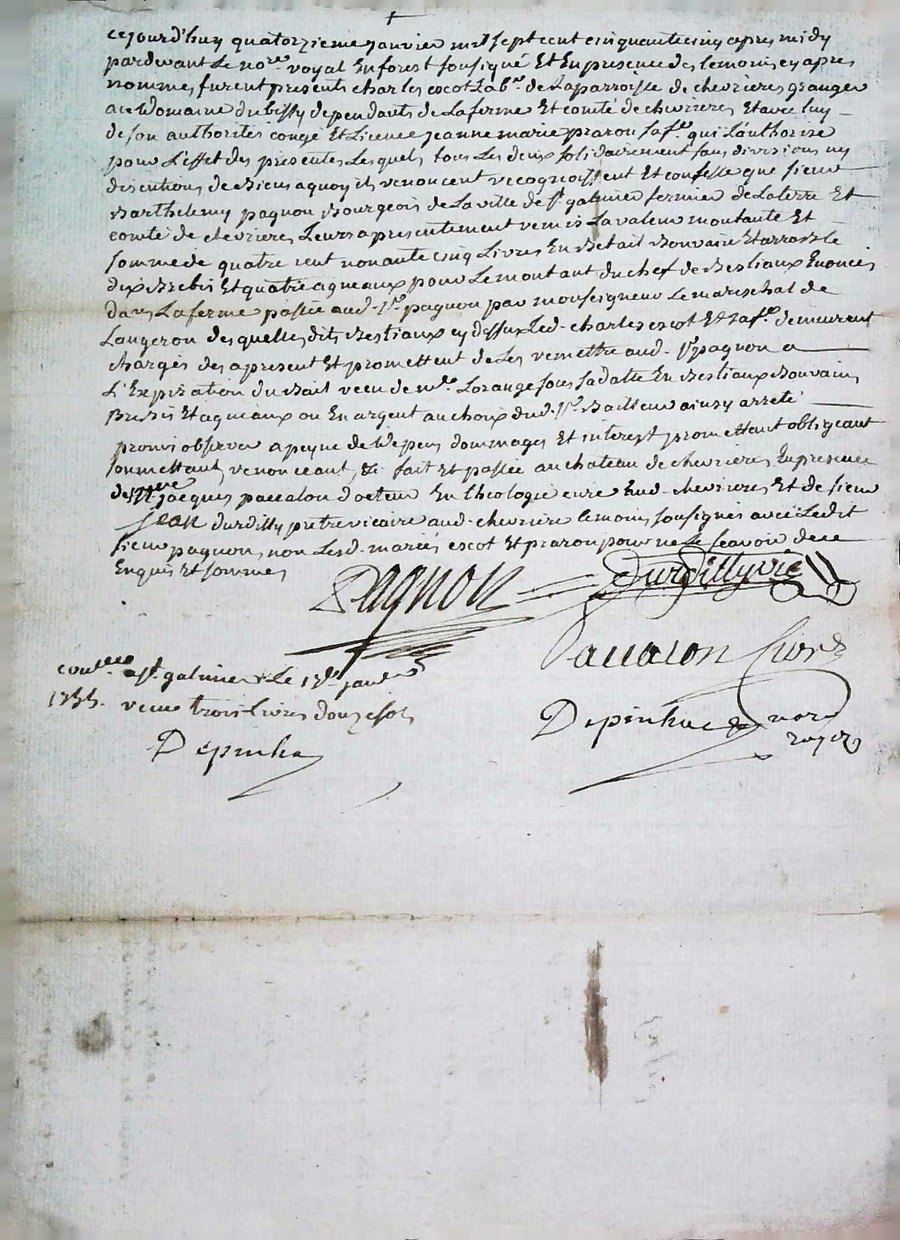 cejourd'huy quatorzieme janvier mil sept cent cinquante cinq apres midy
pardevant Le nore. royal En forest soussigné Et En presence des temoins cy apres
nommes furent presents charles escot Labr. de La parroisse de chevrieres granger
au Domaine du bissy dependants de La ferme Et comté de chevrieres Et avec luy
de son authorités congé Et Licence jeanne marie prazon sa fe. qui L'authorise
pour L'effet des presentes Lesquels tous Les deux solidairement sans divisions ny
discutions de Biens a quoy ils renoncent recognoissent Et confesse que sieur
Barthelemy pagnon Bourgeois de La ville de st. galmier fermier de La terre Et
comté de chevrieres Leurs a presentement remis La valeur montante Et
somme de quatre cent nonante cinq Livres En Betail Bouvaire Et arrass Le
dix Brebis Et quatre agneaux pour Le montant du chef de Bestiaux Enoncés
dans La ferme passée aud. sr. pagnon par monseigneur Le mareschal de
Langeron des quelles dits Bestiaux cy dessus Led. charles escot Et sa fe. demeurent
chargés des a present Et promettent de Les remettre aud. sr. pagnon a
L'Expiration du Bail receu de me. Lorange sous sa datte En Bestiaux Bouvains
Brebis Et agneaux ou En argent au choix dud. sr. Bailleur ainsy arreté
promis observer a peyne de tous depens dommages Et interest promettant obligeant
soumettant, renonceant, &c fait Et passée au chateau de chevrieres En presence
de mre jacques paccalon docteur En theologie curé aud. chevrieres Et de sieur
jean durdilly pretre vicaire aud. chevriere temoins soussignés avec Ledit
sieur pagnon, non Lesd. mariés escot Et prazon pour ne Le scavoir de ce
Enquis Et sommés
Pagnon
Durdilly vic
Paccalon Curé
controllé a st. galmier Le 15e janvier
1755. receu trois Livres douze sols
Depinhac
Depinhac nore
royal